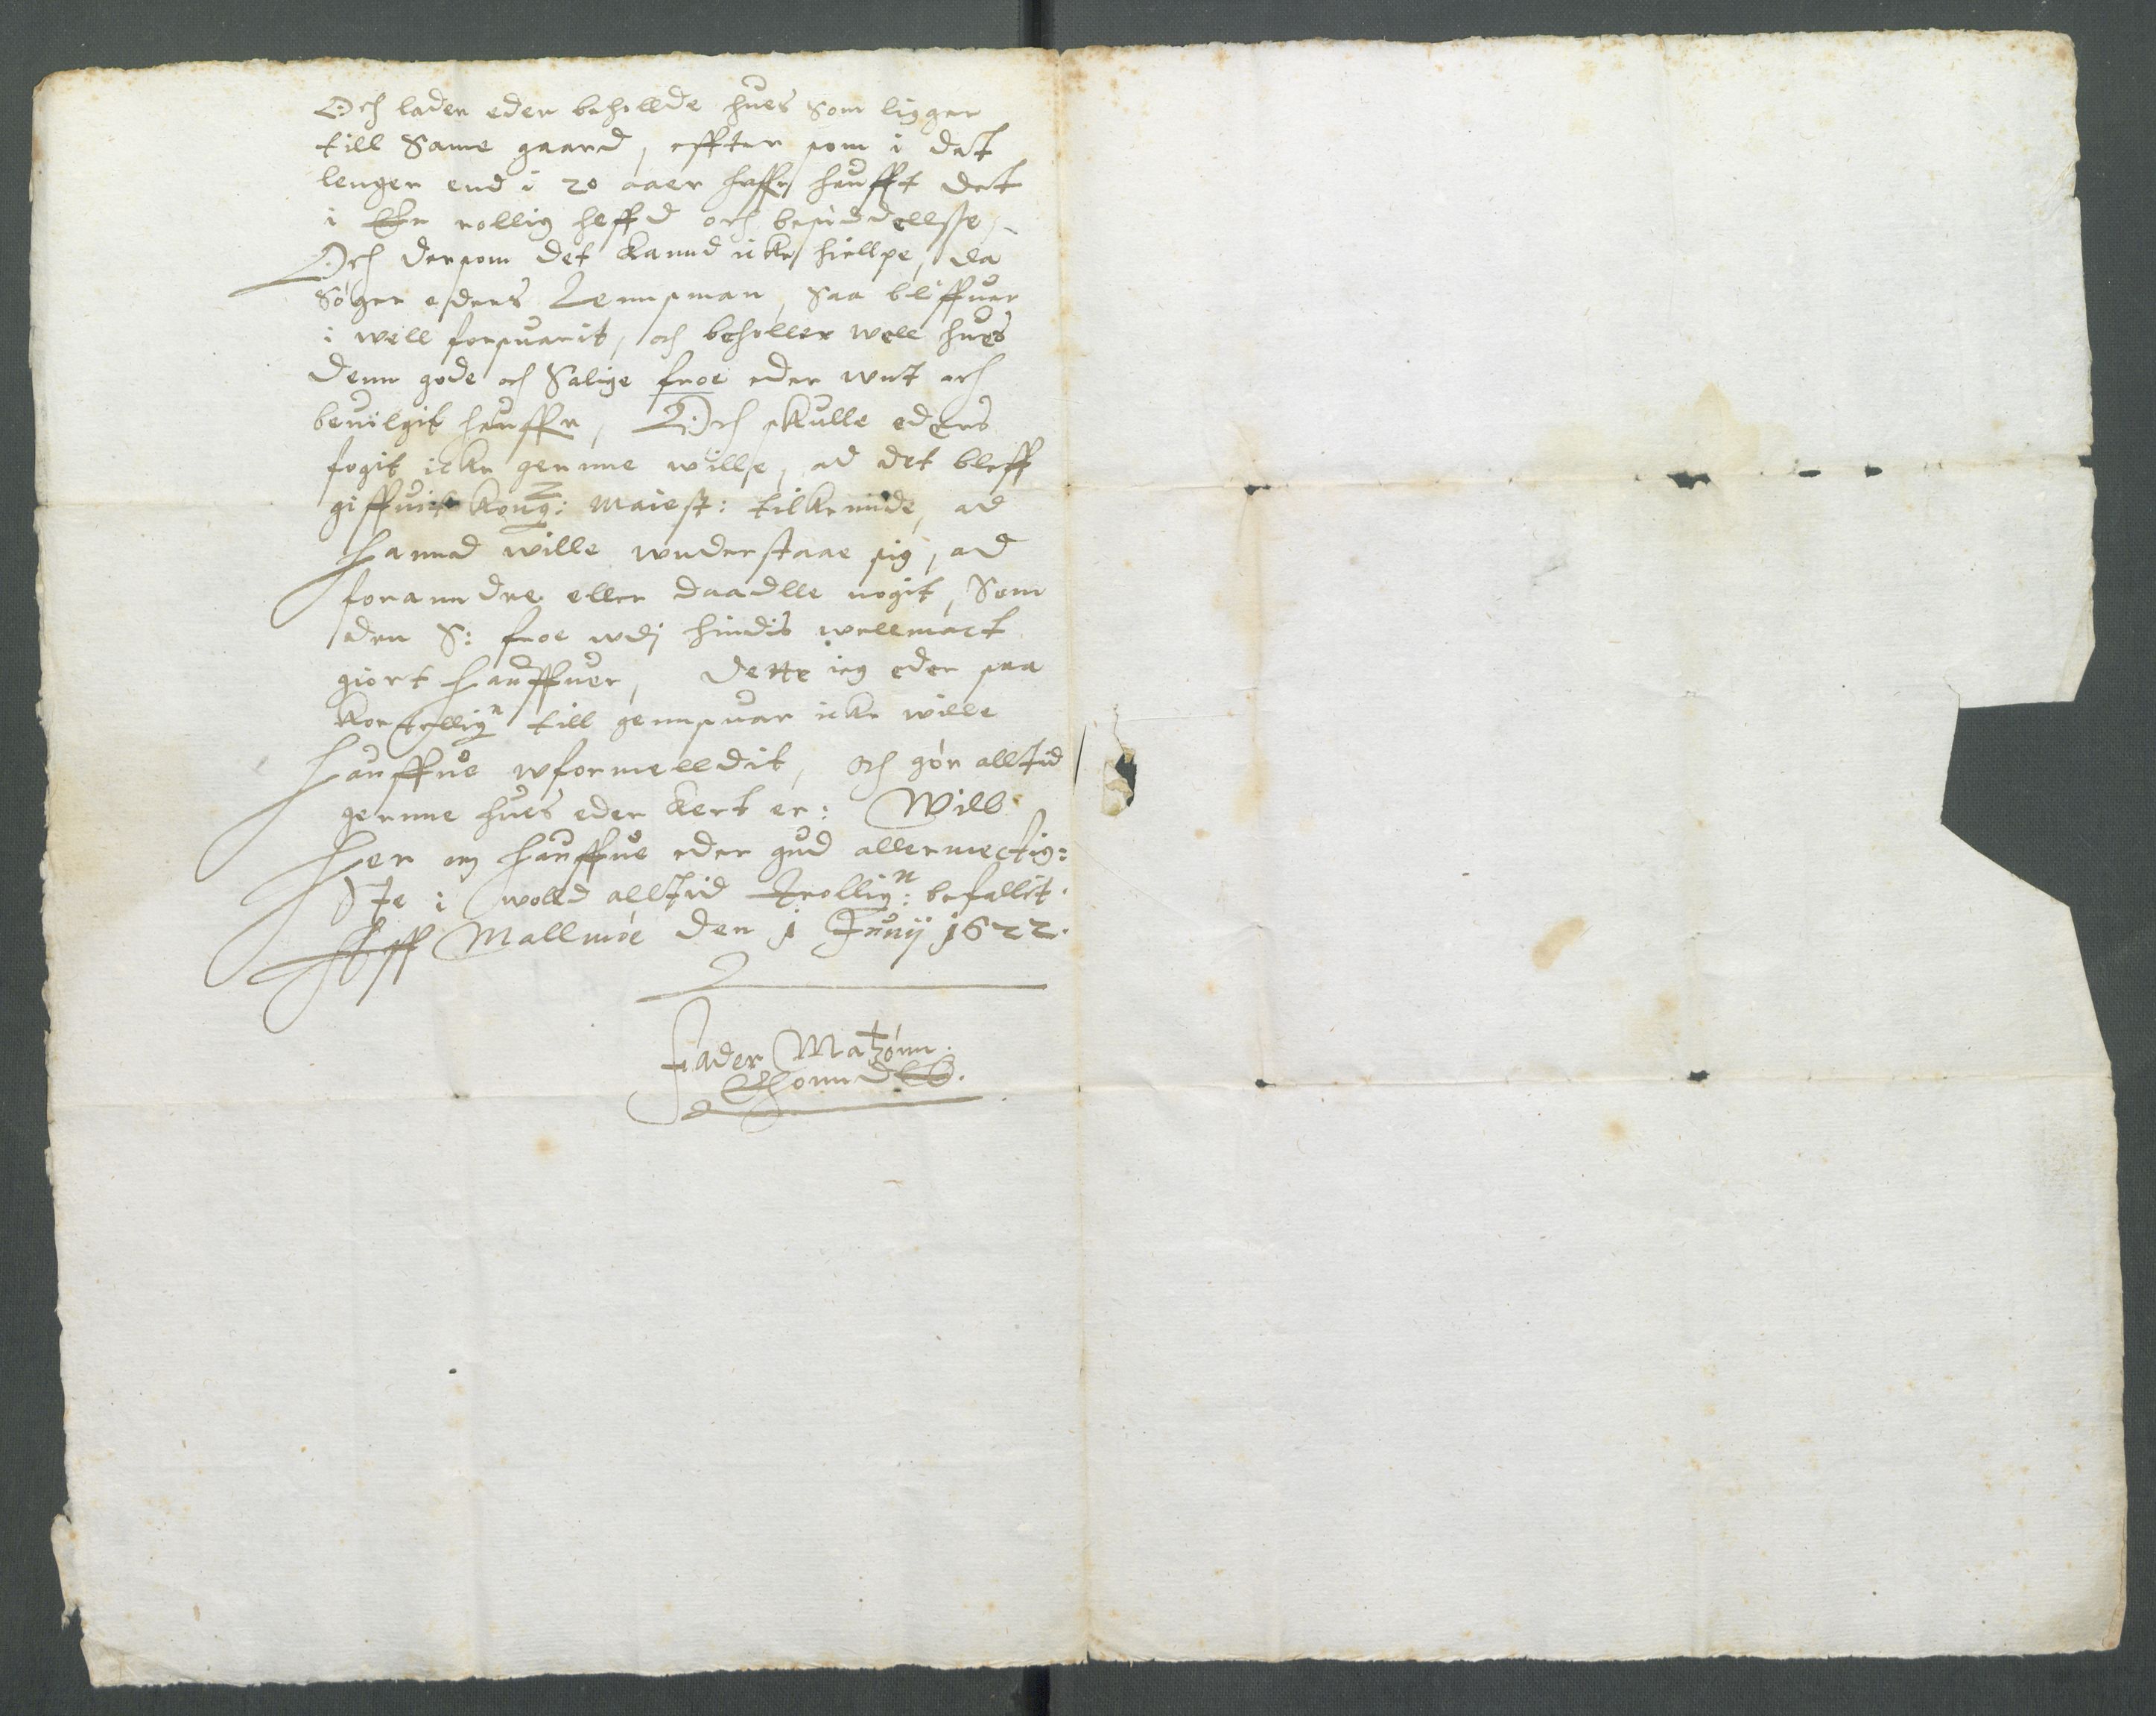 Och lader eder behollde hues Som ligger
till Same gaard, effter som i dett
lenger end i 20 aaer haffr haufft det
i rollig heffd och besiddellsse,
Och dersom det kannd icke hiellpe, da
Söger eders Lennsman, Saa bliffuer
i well forsuarit, och beholler well hues
denn gode och Salige froe eder unt och
beuilgit hauffr, Och skulle eders
fogit icke gernne wille, ad det bleff
giffuit kong: Maiest: tilkennde, ad
hannd wille wnderstaae sig, ad
foranndre eller daadlle nogit, Som
den S: froe wdj hindis wellmact
giort hauffuer, dette ieg eder paa
kortellign till gennsuar icke wille
hauffue wformelldit, och gör alltid
gernne hues eder kert er: Will
her om hauffue eder gud allermectig:
ste i wolld alltiid trollign: befallit.
Aff Mallmöe den 1 Junij 1622.
Fader Matzönn.